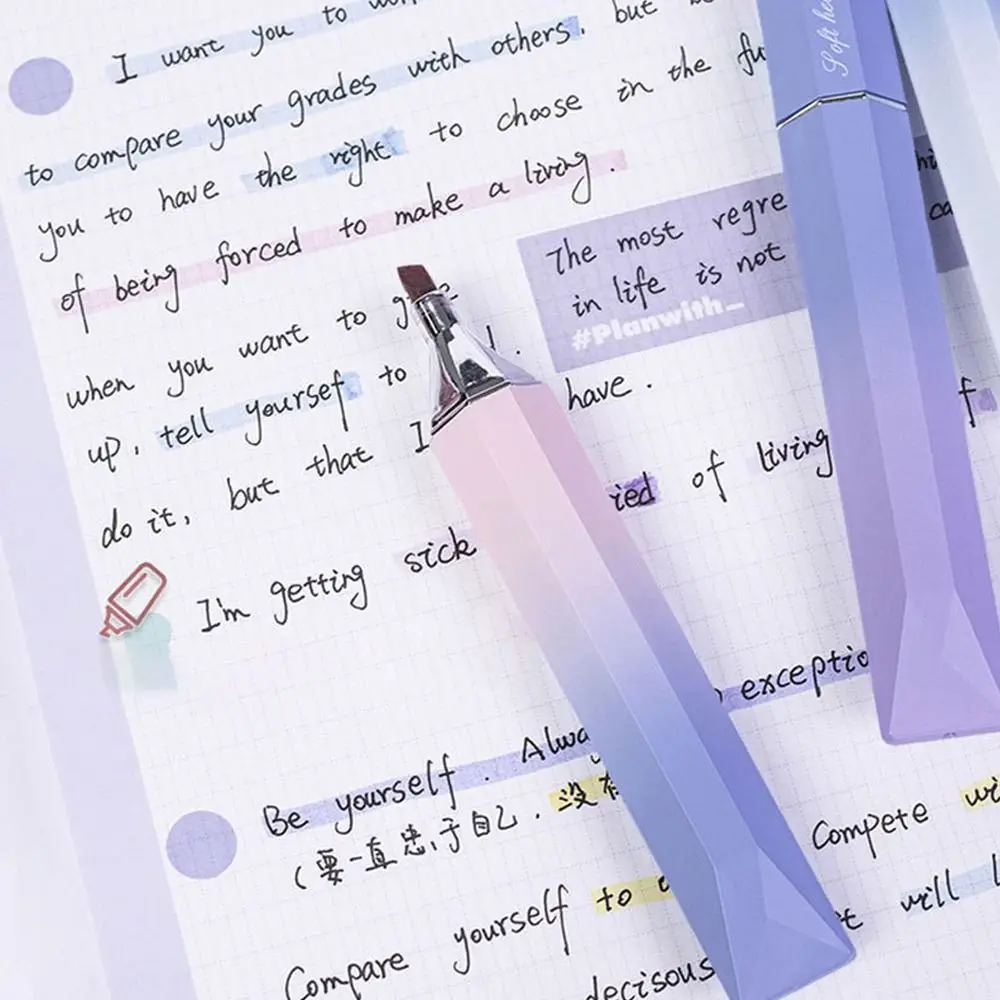 I want you to
to compare your grades with others, but
you to have the right to choose in the
of being forced to make a living.
The most
in life is not
#Planwith_
when you want to
up, tell yoursef to
have.
do it, but that I
I'm getting sick of living
exceptio
Be yourself. Alwa
(要一直忠于自己.没有
Compete
Compare yourself to
will
decisous
Soft